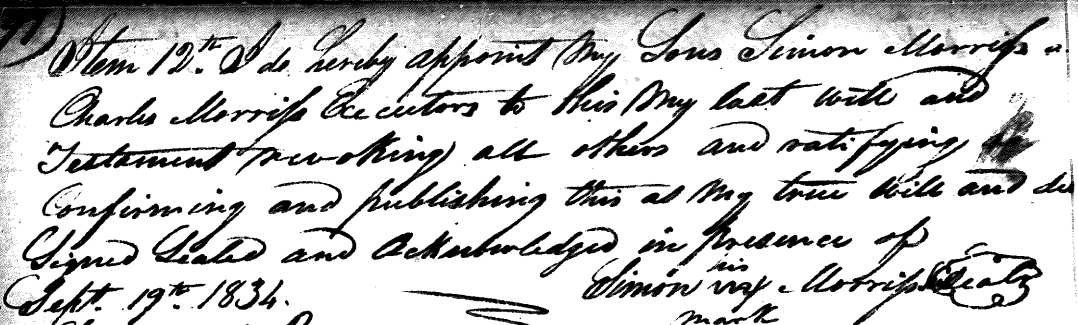 Item 12th. I do hereby appoint My Sons Simon Morriss &
Charles Morriss Executors to this My last will and
Testament revoking all others and ratifying
Confirming and publishing this as My true Will and
Signed Sealed and Acknowledged in presence of
Sept. 19th 1834. Simon his x Morriss Seal
mark